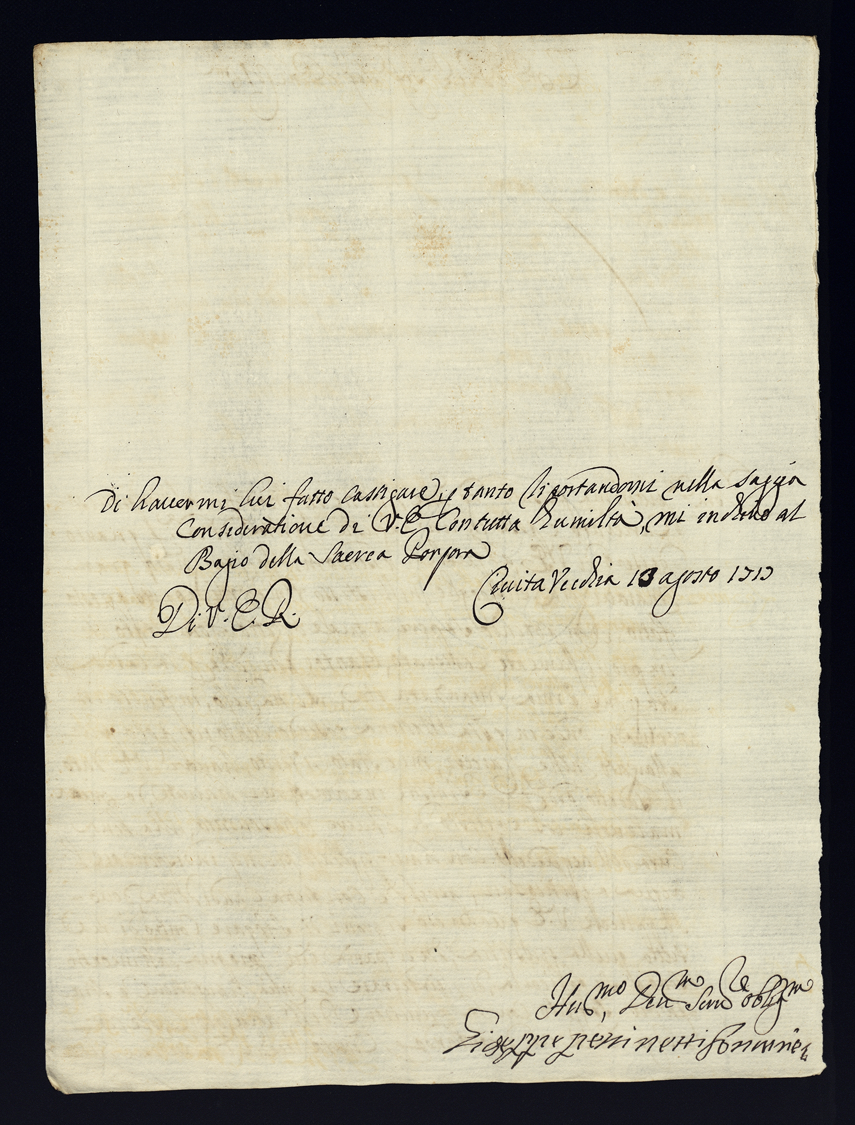 Di havermi lui fatto castigare, p tanto riportandomi nella saggia
Consideratione di V. E. Con tutta humiltà, mi inchino al
Bagio della Sacrea Porpora
Civita Vecchia 13 agosto 1713
Di V. E. R.
Hu:mo, Deu:m Seru:e obblig:m
Giuseppe